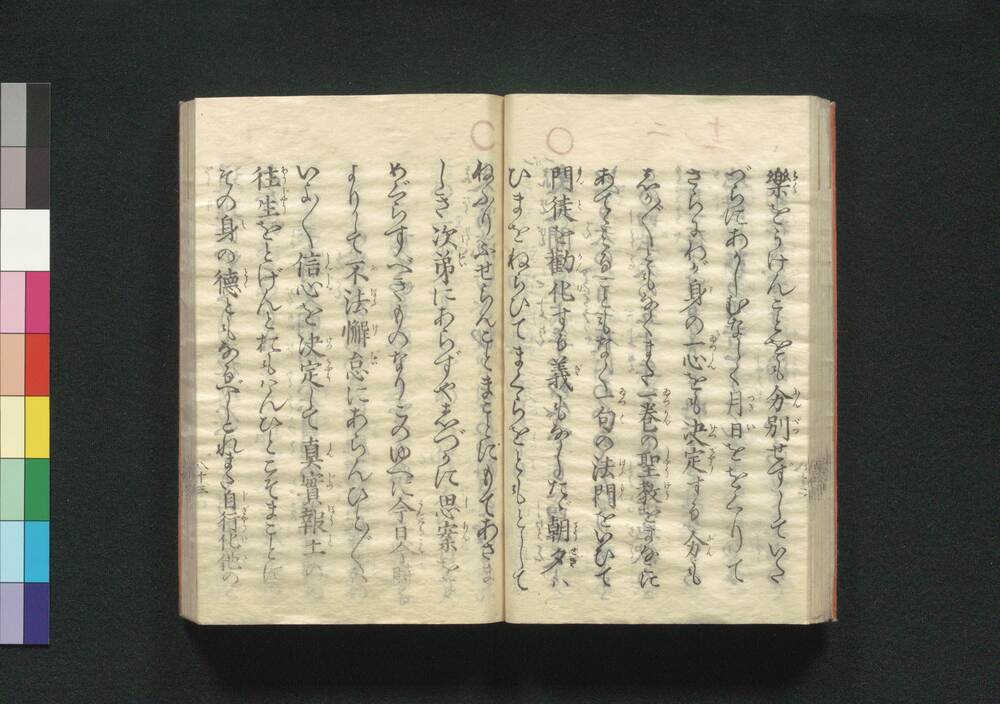 樂をうけんことをも分別せずしていた
づらにあかしむなしく月日ををくりて
さらにわが身の一心をも決定する分も
しか〳〵ともなくまた一巻の聖教をまなこに
あてゝみることもなく一句の法門をいひて
門徒を勸化する義もなしたゞ朝夕は
ひまをねらひてまくらをともとして
ねふりふせらんことまことにもてあさま
しき次第にあらずやしづかに思案をめ
めぐらすべきものなりこのゆへに今日今時
よりして不法懈怠にあらんひと〴〵は
いよ〳〵信心を決定して真實報土の
往生をとげんとおもはんひとこそまことに
その身の徳ともなるべしこれまた自行化他の
八十三
十二
二